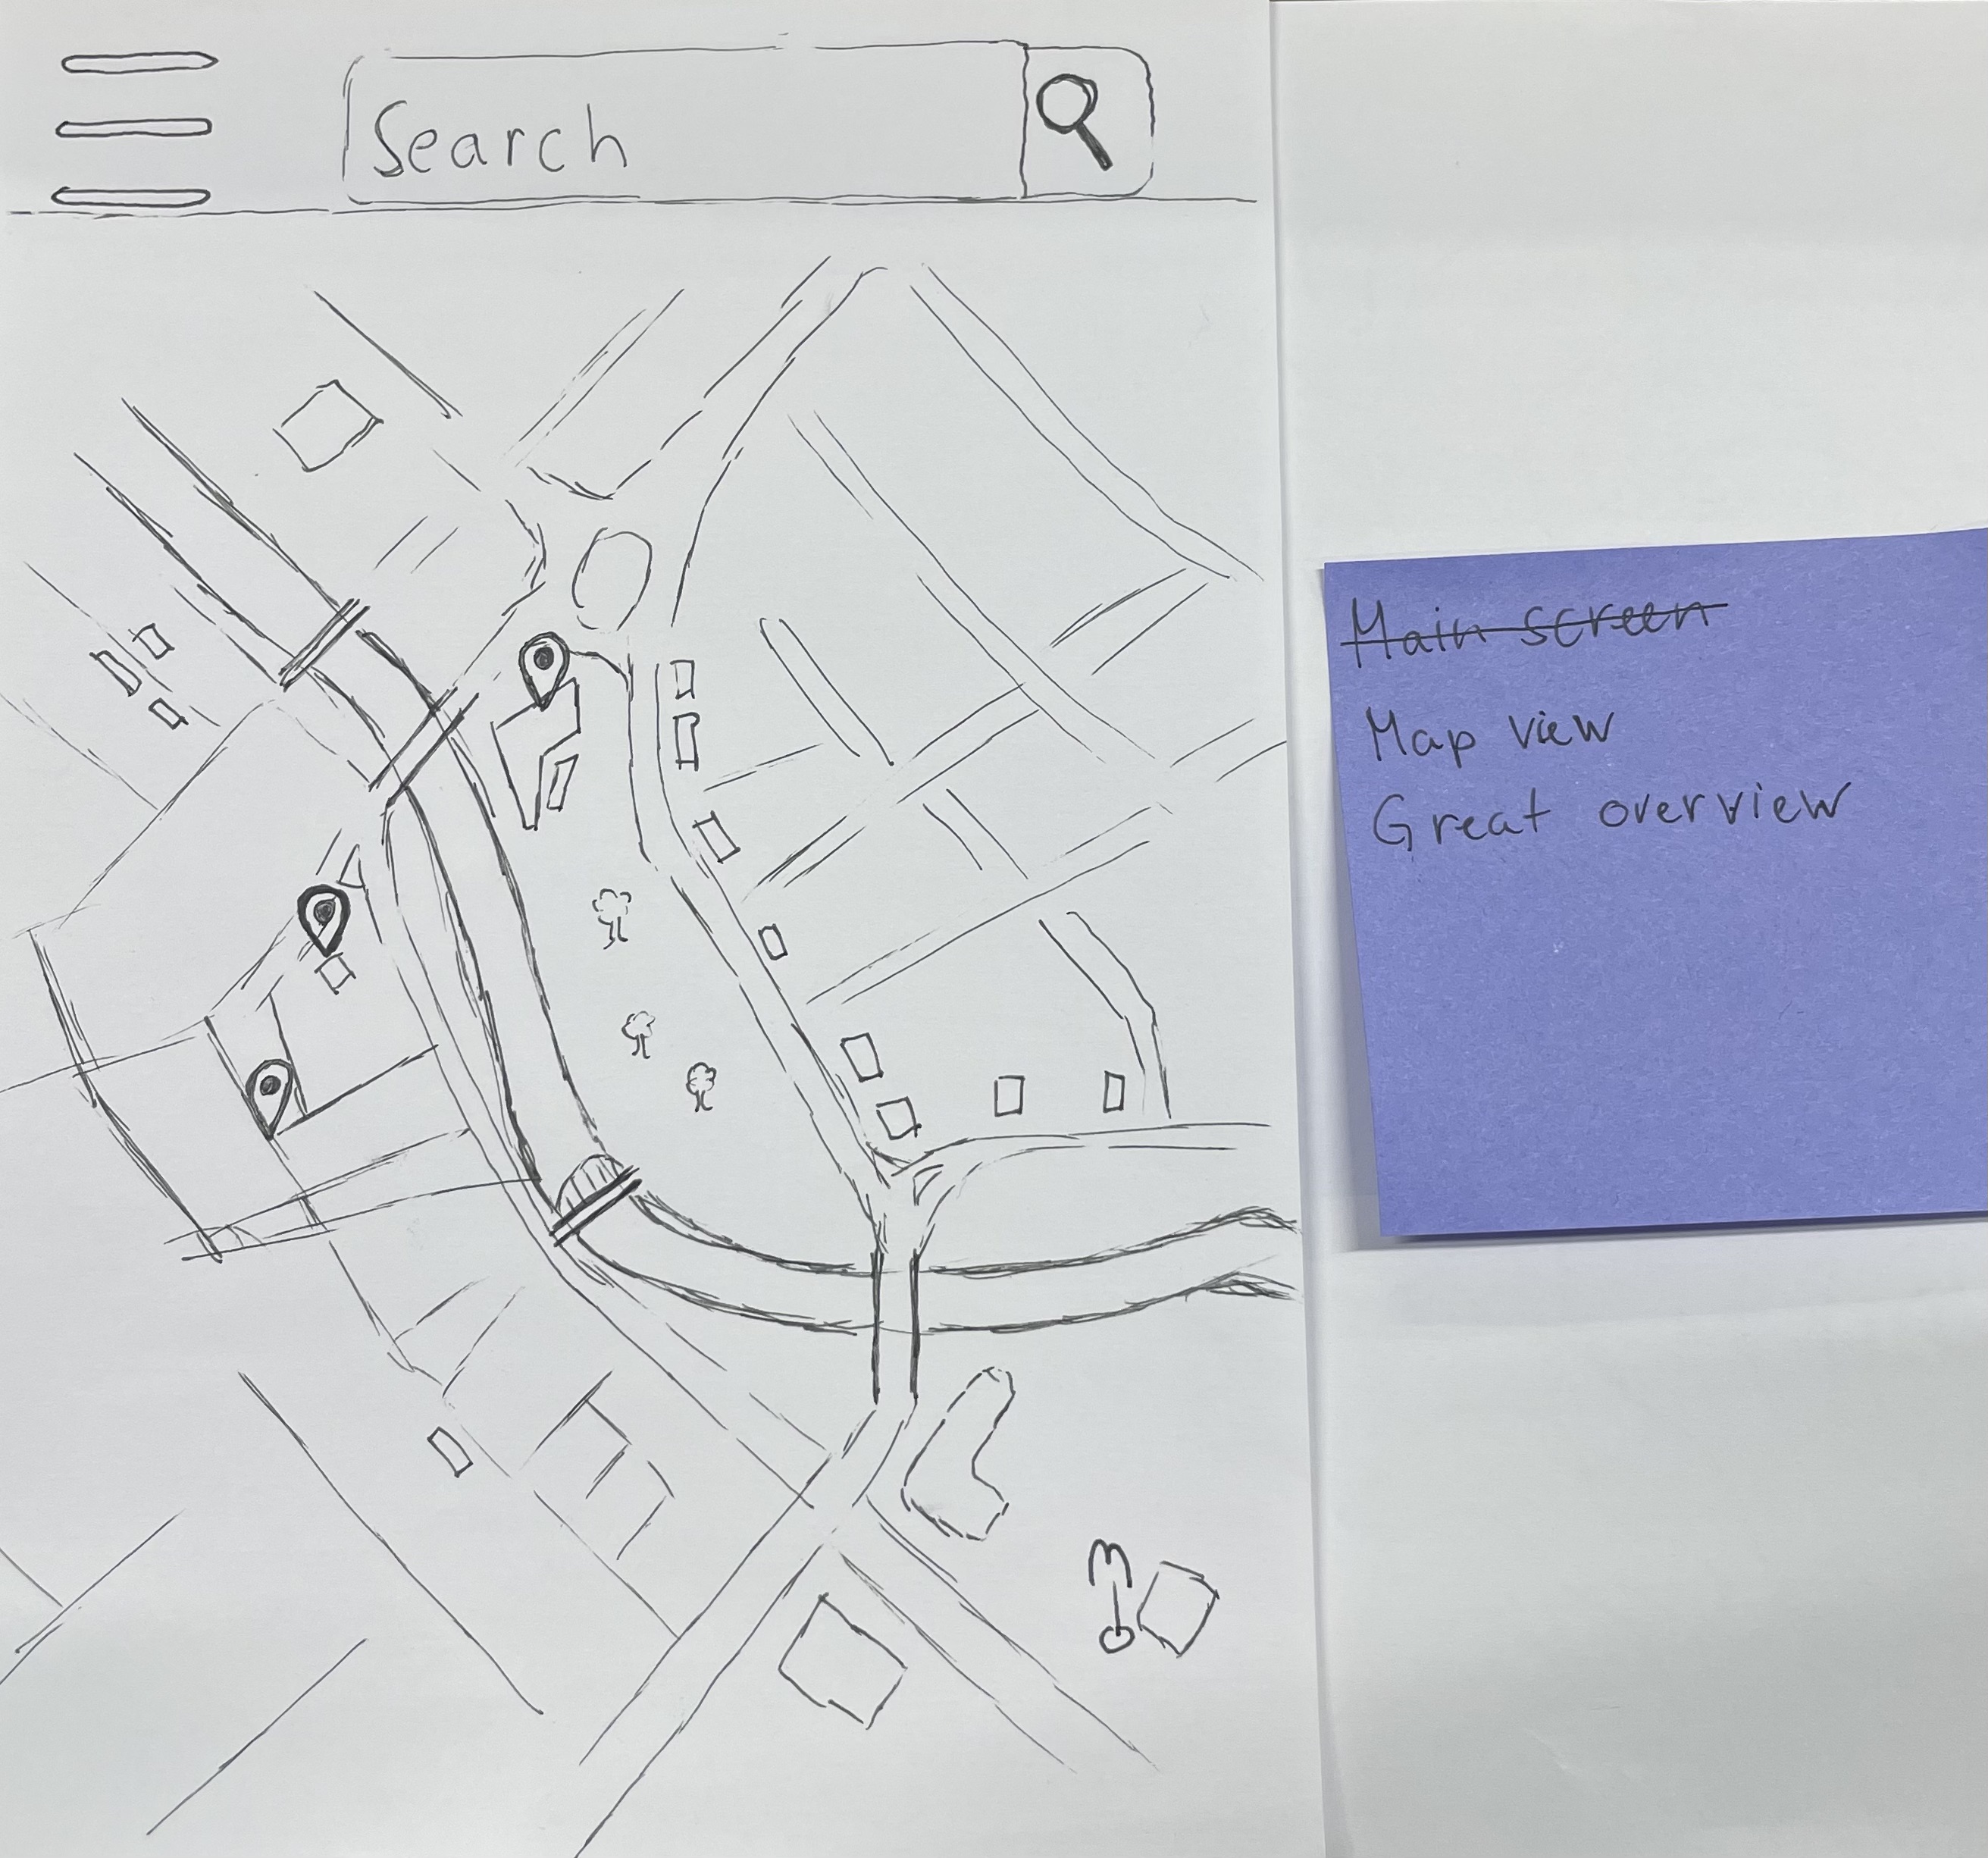 Search
~~Main screen~~
Map view
Great overview